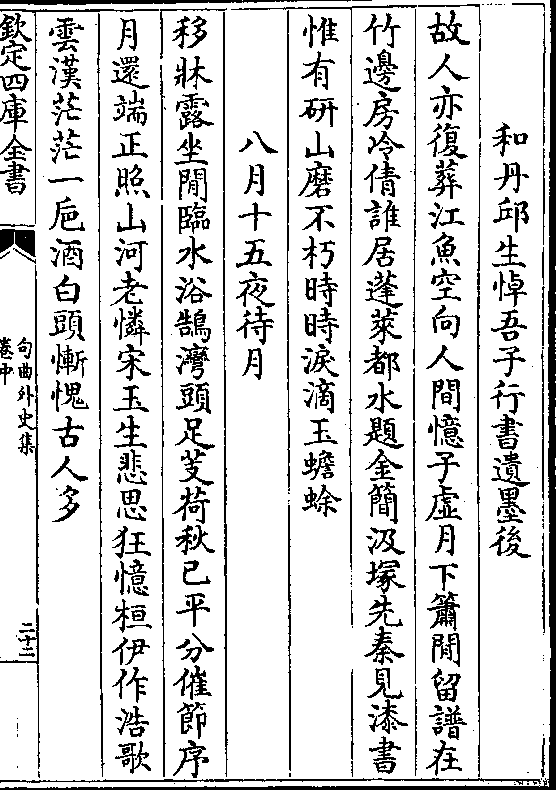 和丹邱生悼吾子行書遺墨後
故人亦復葬江魚空向人間憶子虛月下簫閒留譜在
竹邊房冷倩誰居蓬萊都水題金簡汲塚先秦見漆書
惟有研山磨不朽時時淚滴玉蟾蜍
八月十五夜待月
移牀露坐閒臨水浴鵠灣頭足芰荷秋已平分催節序
月還端正照山河老憐宋玉生悲思狂憶桓伊作浩歌
雲漢茫茫一巵酒白頭慚愧古人多
欽定四庫全書
句曲外史集
卷中
二十二